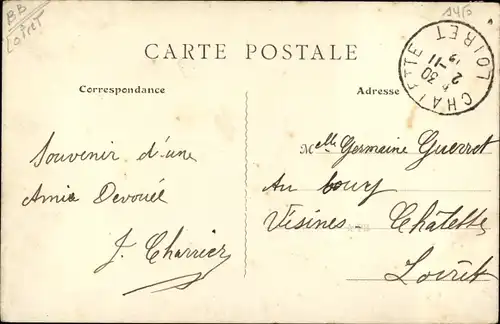 BB
Loiret
CARTE POSTALE
Correspondance
Adresse
CHALETTE LOIRET
30
2 - 11
19
Souvenir d'une
Amie Devouée
J. Charrier
Melle Germaine Guerrot
Au bourg
Vésines Châlette
Loiret